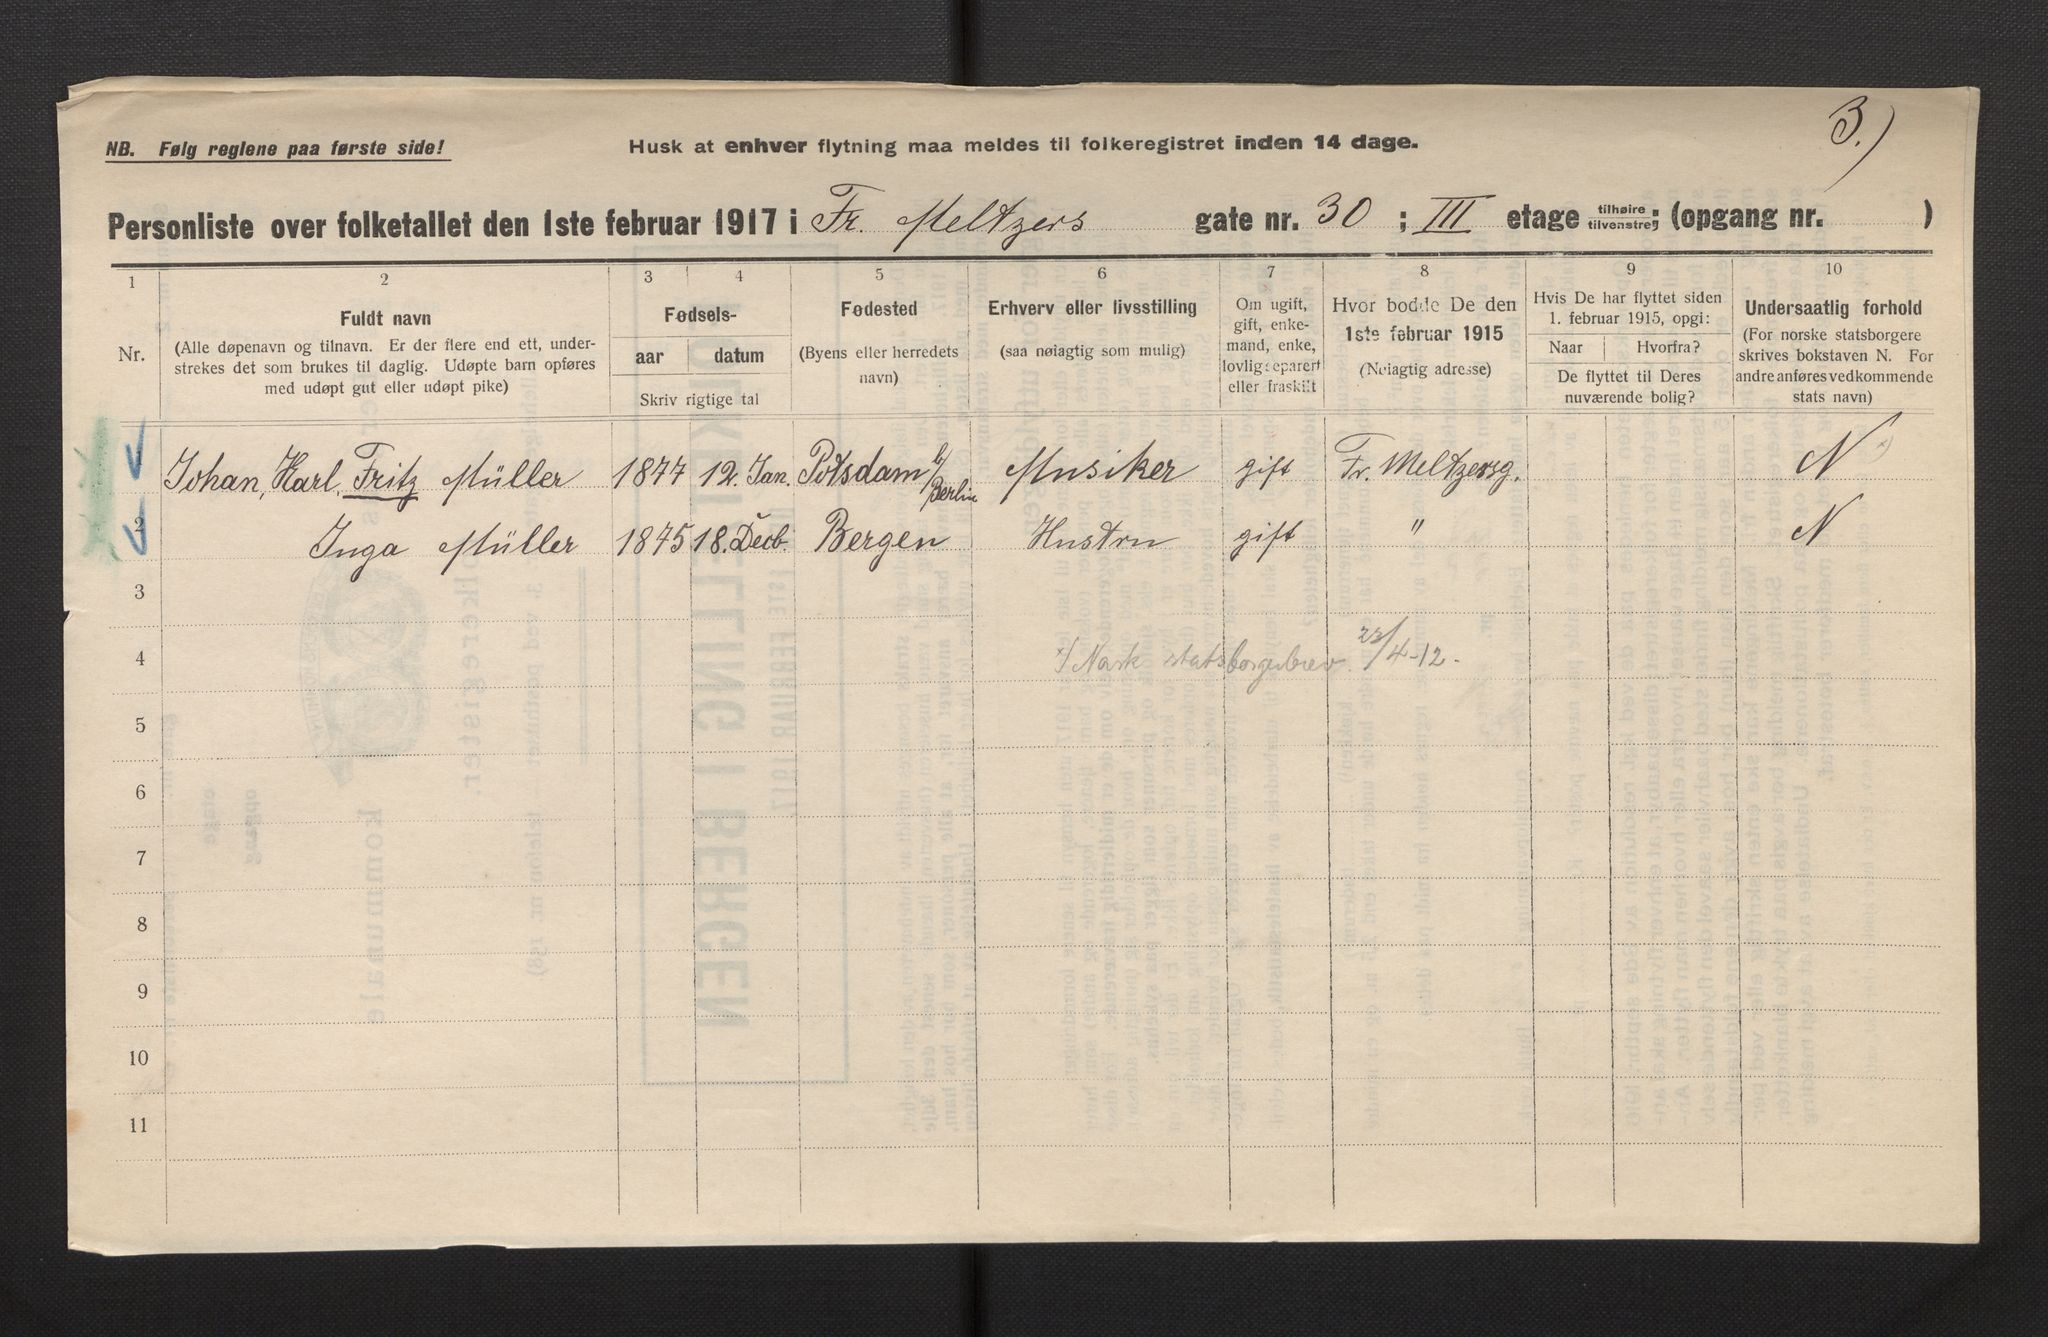 3.)
NB. Følg reglene paa første side!
Husk at enhver flytning maa meldes til folkeregistret inden 14 dage.
Personliste over folketallet den 1ste februar 1917 i Fr. Meltzers gate nr. 30 ; III etage tilhøire/tilvenstre; (opgang nr. )
1 2 3 4 5 6 7 8 9 10
Nr.
Fuldt navn
(Alle døpenavn og tilnavn. Er der flere end ett, under-
strekes det som brukes til daglig. Udøpte barn opføres
med udøpt gut eller udøpt pike)
Fødsels-
aar datum
Skriv rigtige tal
Fødested
(Byens eller herredets
navn)
Erhverv eller livsstilling
(saa nøiagtig som mulig)
Om ugift,
gift, enke-
mand, enke,
lovlig separert
eller fraskilt
Hvor bodde De den
1ste februar 1915
(Nøiagtig adresse)
Hvis De har flyttet siden
1. februar 1915, opgi:
Naar Hvorfra?
De flyttet til Deres
nuværende bolig?
Undersaatlig forhold
(For norske statsborgere
skrives bokstaven N. For
andre anføres vedkommende
stats navn)
Johan, Karl, Fritz Müller 1877 12. Jan. Potsdam b/ Berlin Musiker gift Fr. Meltzersg. N x)
2 Inga Müller 1875 18. Decb. Bergen Hustru gift " N
3
4 x) Norsk statsborgerbrev 23/4-12.
5
6
7
8
9
10
11